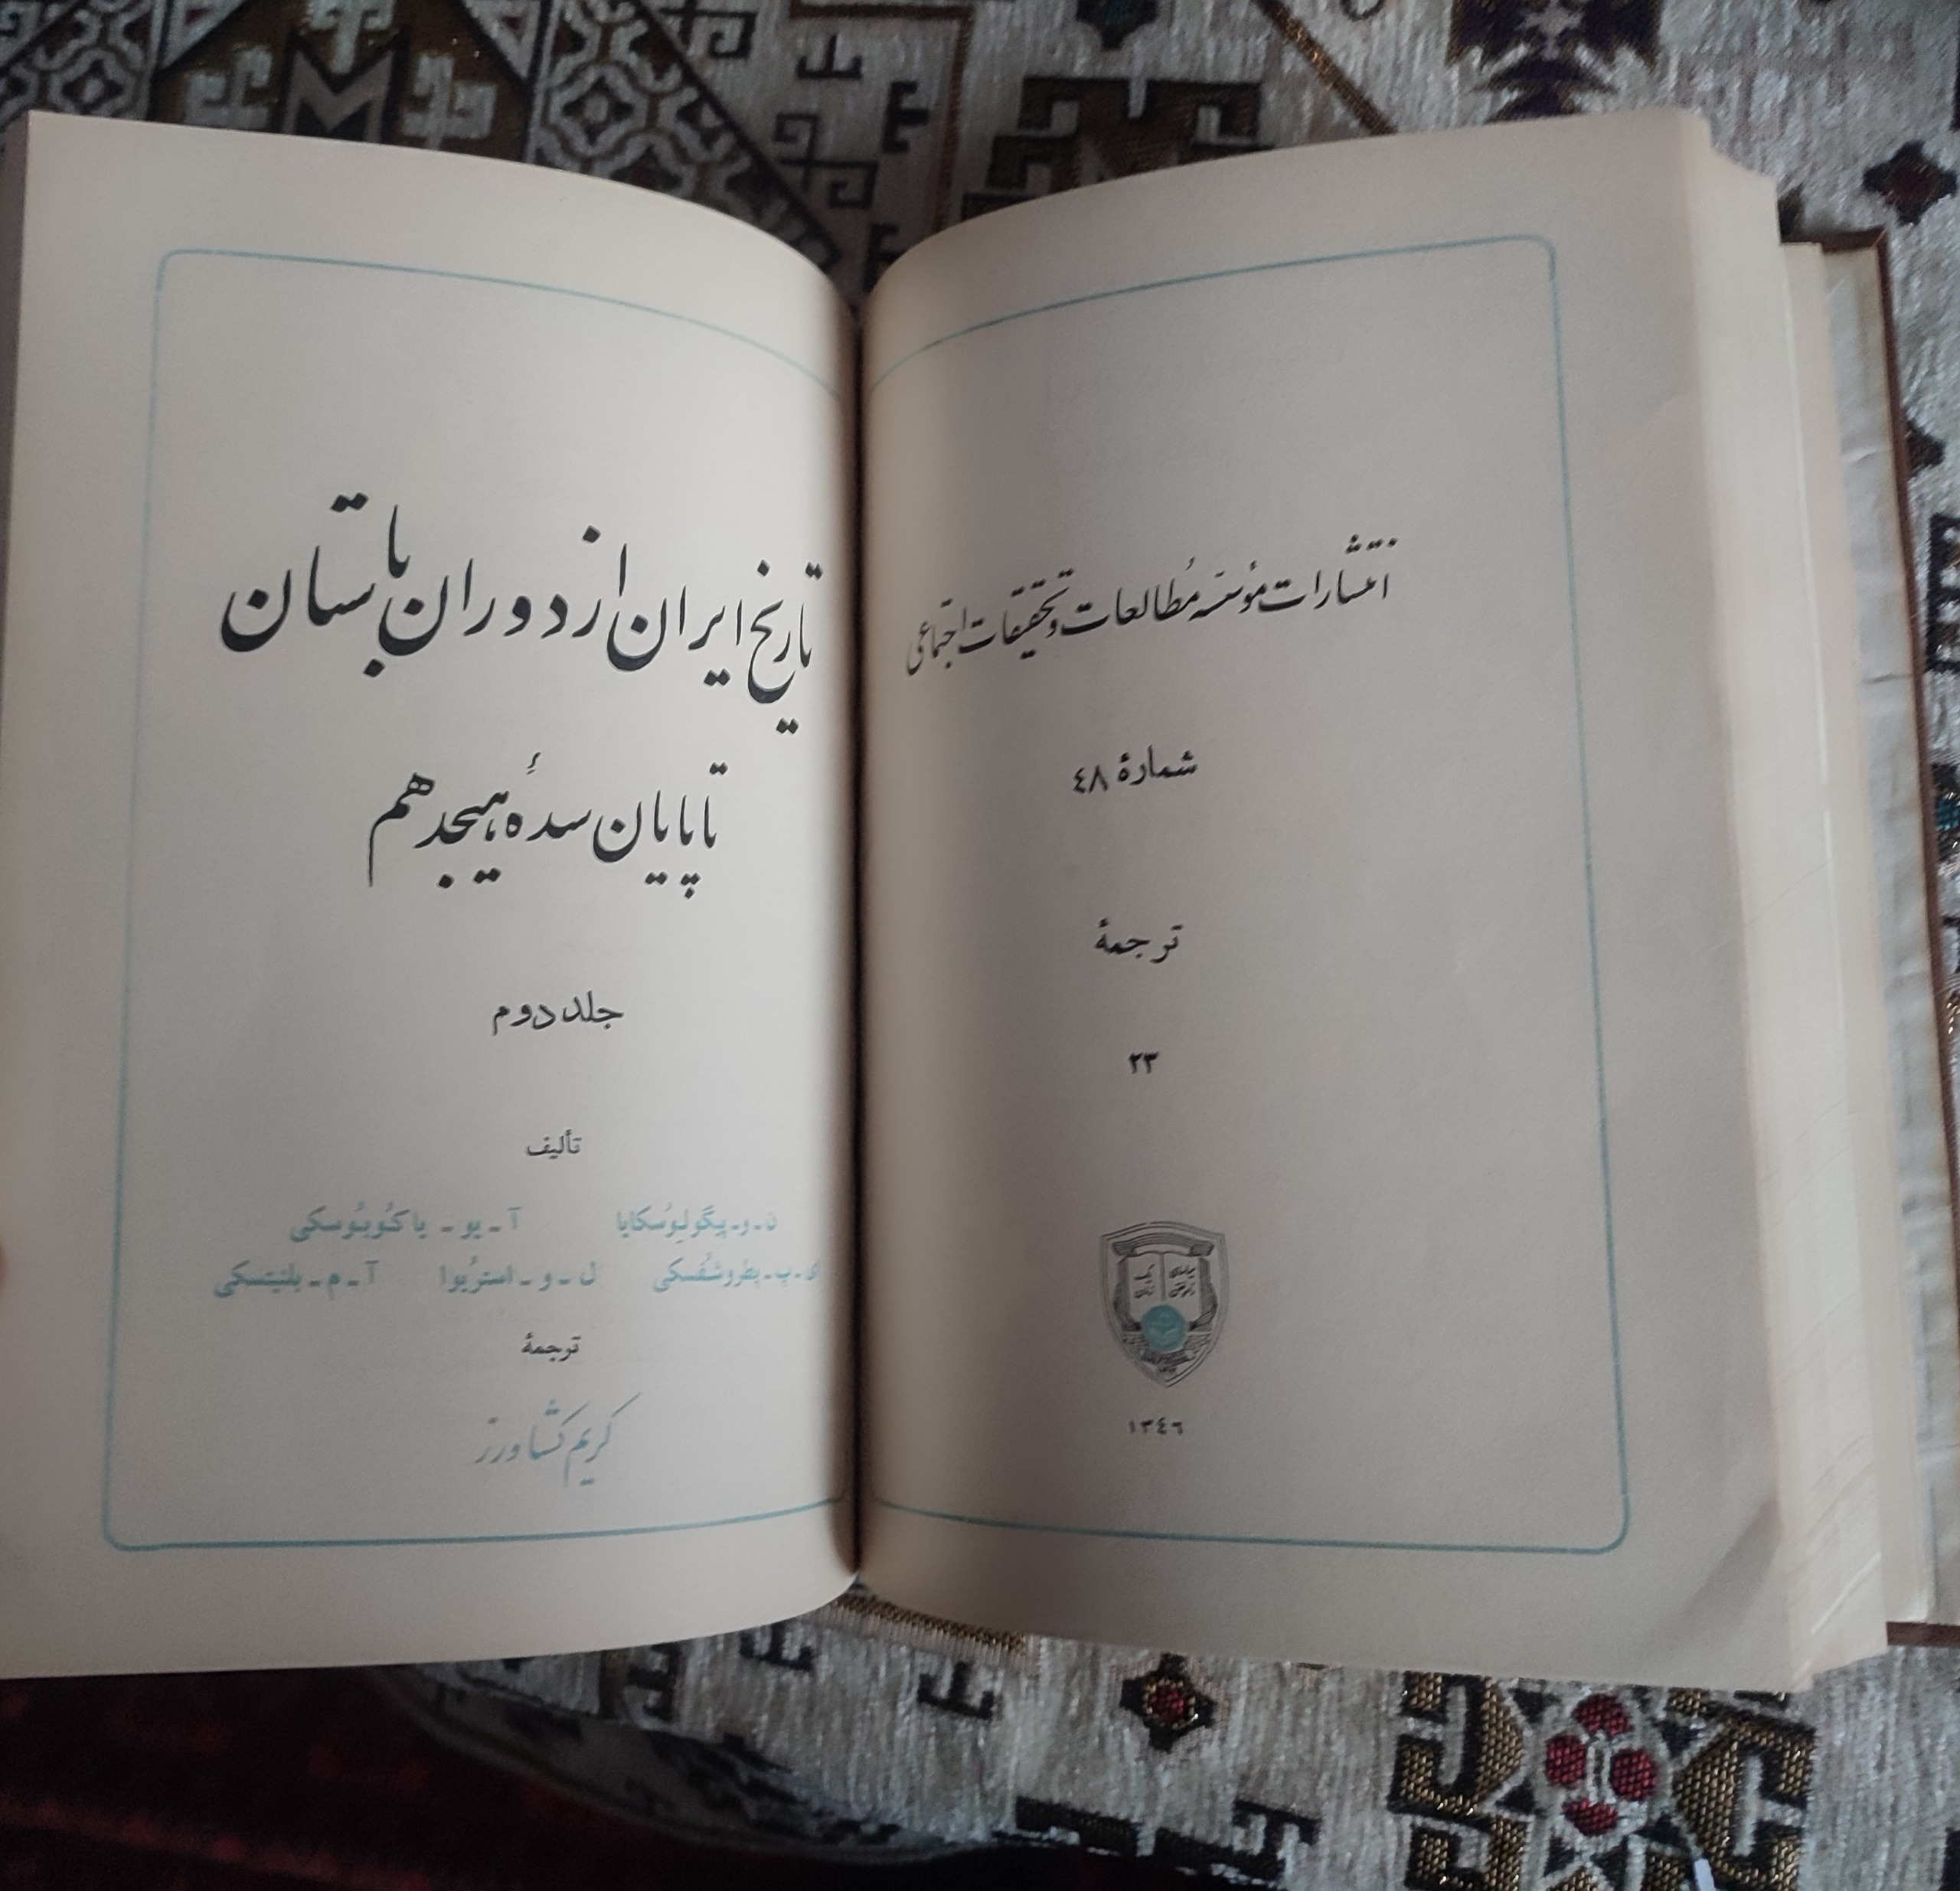 انتشارات مؤسسه مطالعات و تحقیقات اجتماعی
شمارهٔ ٤٨
ترجمهٔ
۲۳
۱۳٤٦
تاریخ ایران از دوران باستان
تا پایان سدهٔ هیجدهم
جلد دوم
تألیف
ن ـ و ـ پیگولوُسکایا آ ـ یو ـ یاکوُبوُسکی
ای ـ پ ـ پطروشفُسکی ل ـ و ـ استرُیوا آ ـ م ـ بلنیتسکی
ترجمهٔ
کریم کشاورز